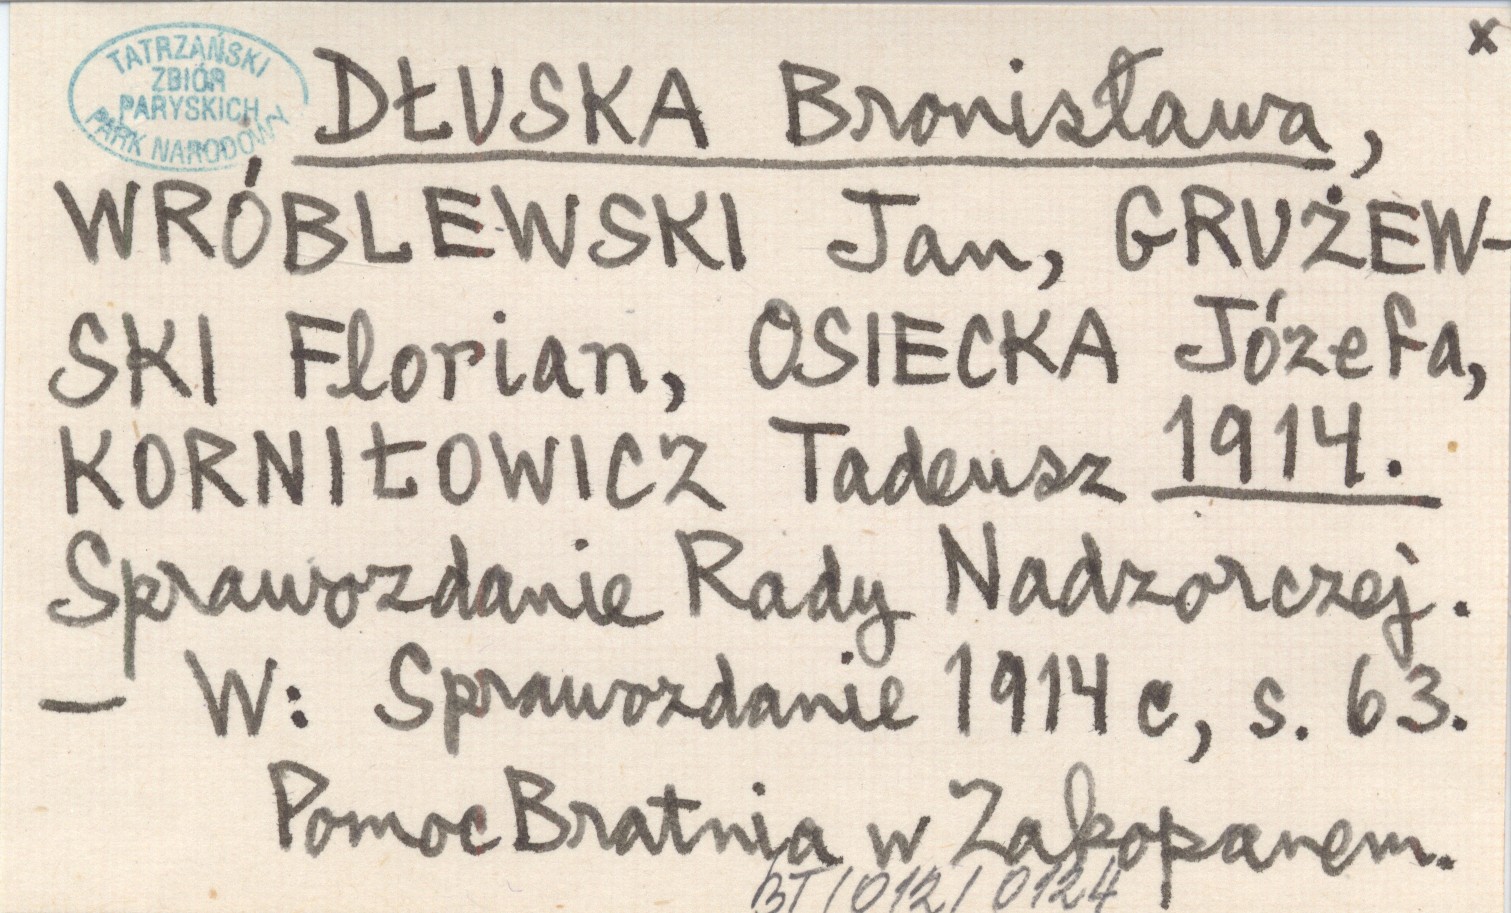 x
TATRZAŃSKI
ZBIÓR
PARYSKICH
PARK NARODOWY
DŁUSKA Bronisława,
WRÓBLEWSKI Jan, GRUŻEW-
SKI Florian, OSIECKA Józefa,
KORNIŁOWICZ Tadeusz 1914.
Sprawozdanie Rady Nadzorczej.
— W: Sprawozdanie 1914 c, s. 63.
Pomoc Bratnia w Zakopanem.
BT/012/0124